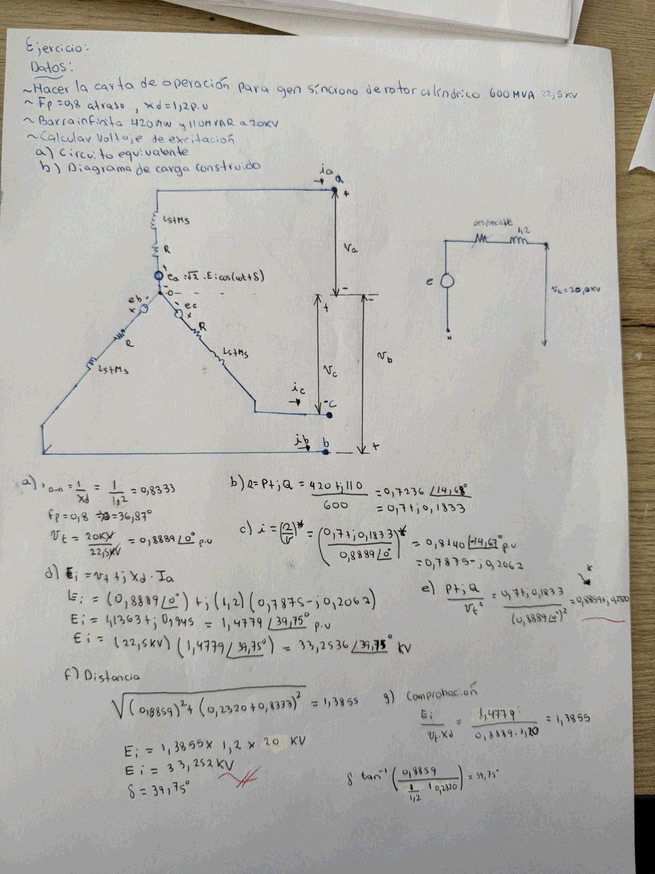 Ejercicio:
Datos:
~Hacer la carta de operación para gen síncrono de rotor cilíndrico 600 MVA 22,5KV
~ Fp=0,8 atraso, Xd=1,2 P.U
~ Barra infinita 420 MW y 110 MVAR a 20KV
~Calcular Voltaje de excitación
a) Circuito equivalente
b) Diagrama de carga construido
ia
a
+
Ls+Ms
R
ea=√2·Ei cos(ωt+δ)
Va
-
eb
ec
R
R
Ls+Ms
Ls+Ms
+
-
Vc
Vb
ic
-C
ib
b
+
despreciable
1,2
e
Vt=20,0KV
N
a)
= 1/Xd = 1/1,2 = 0,8333
fp=0,8 =36,87°
Vt = 20KV/22,5KV = 0,8889∠0° p.u
b) = P+jQ = 420+j110/600 = 0,7236 ∠14,68°
= 0,7+j0,1833
c) i = = (0,7+j0,1833/0,8889∠0°)* = 0,8140 ∠-14,67° p.u
= 0,7875-j0,2062
d) Ei = Vt+j Xd · Ia
Ei = (0,8889∠0°) + j(1,2)(0,7875-j0,2062)
Ei = 1,1363+j0,945 = 1,4779 ∠39,75° p.u
Ei = (22,5KV)(1,4779∠39,75°) = 33,2536 ∠39,75° KV
e) P+jQ/Vt² = 0,7+j0,1833/(0,8889∠0°)² = 0,8859+j0,2320
f) Distancia
√(0,8859)²+(0,2320+0,8333)² = 1,3855
Ei = 1,3855 x 1,2 x 20 KV
Ei = 33,252 KV
δ = 39,75°
g) Comprobación
Ei/Vt·Xd = 1,4779/0,8889·1,20 = 1,3855
δ tan⁻¹(0,8859/1/1,2 + 0,2320) = 39,75°